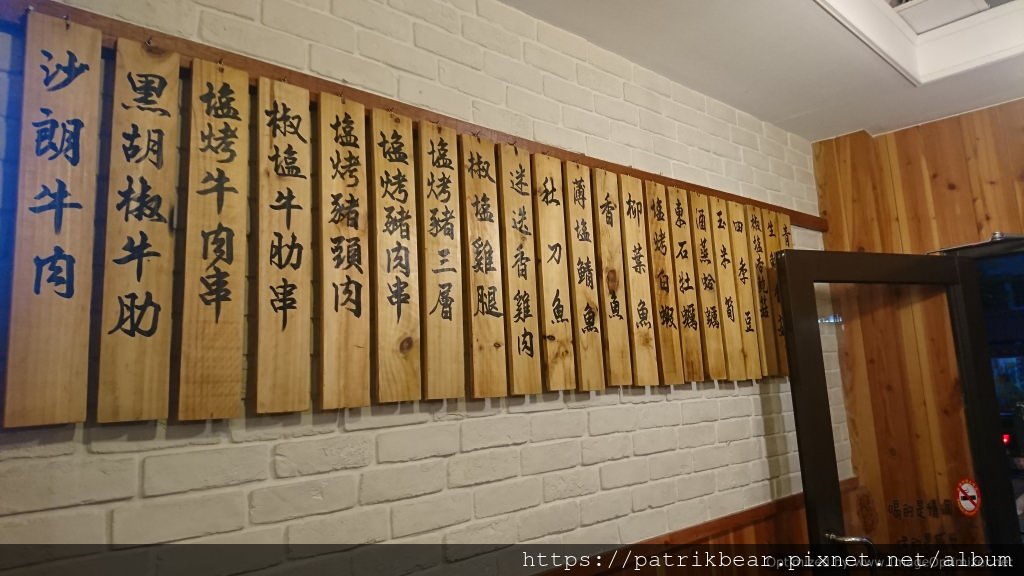 沙朗牛肉
黑胡椒牛肋
塩烤牛肉串
椒塩牛肋串
塩烤豬頭肉
塩烤豬肉串
塩烤豬三層
椒塩雞腿
迷迭香雞肉
肚刀魚
薄塩鯖魚
香魚
柳葉魚
塩烤白蝦
東石牡蠣
酒蒸蛤蠣
玉米筍
四季豆
椒塩杏鮑菇
生
青
https://patrikbear.pixnet.net/album